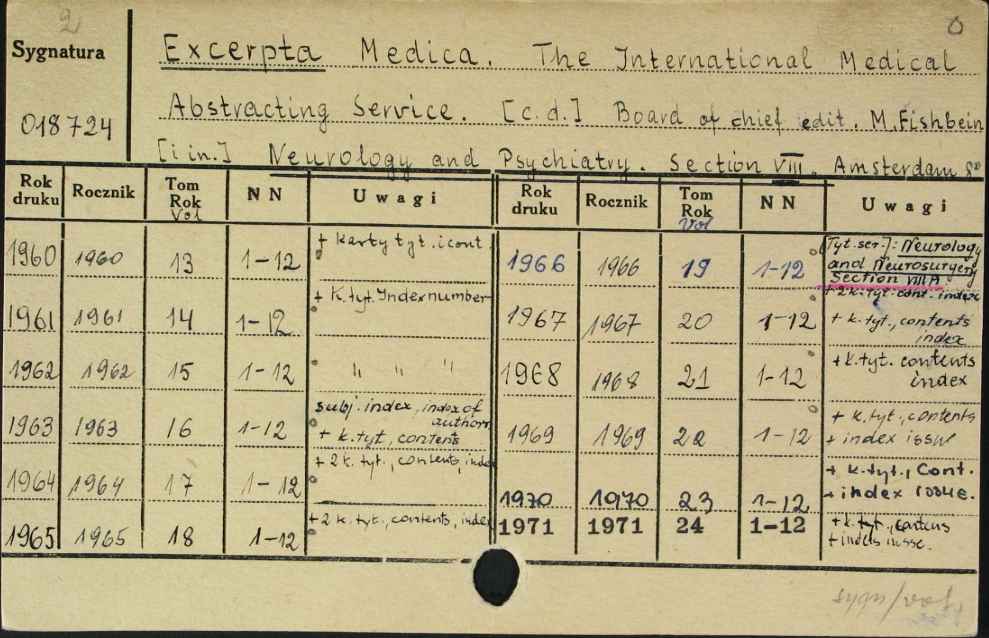 2
0
Sygnatura
018724
Excerpta Medica. The International Medical
Abstracting Service. [c.d.] Board of chief edit. M. Fishbein
[i in.] Neurology and Psychiatry. Section VIII. Amsterdam 8°
Rok druku Rocznik Tom Rok Vol NN Uwagi
1960 1960 13 1-12 + karty tyt. i cont.
1961 1961 14 1-12 + k. tyt. Indernumber
1962 1962 15 1-12 " " "
1963 1963 16 1-12 subj. index, index of authors
+ k. tyt, contents
1964 1964 17 1-12 + 2 k. tyt., contents, index
1965 1965 18 1-12 + 2 k. tyt., contents, index
Rok druku Rocznik Tom Rok Vol NN Uwagi
1966 1966 19 1-12 [Tyt. ser.]: Neurology
and Neurosurgery
Section VIII A
+ 2k. tyt. cont. index
1967 1967 20 1-12 + k. tyt., contents
index
1968 1968 21 1-12 + k. tyt. contents
index
1969 1969 22 1-12 + k. tyt., contents
+ index issue
1970 1970 23 1-12 + k. tyt., Cont.
+ index issue.
1971 1971 24 1-12 + k. tyt., contens
+ indels iusse.